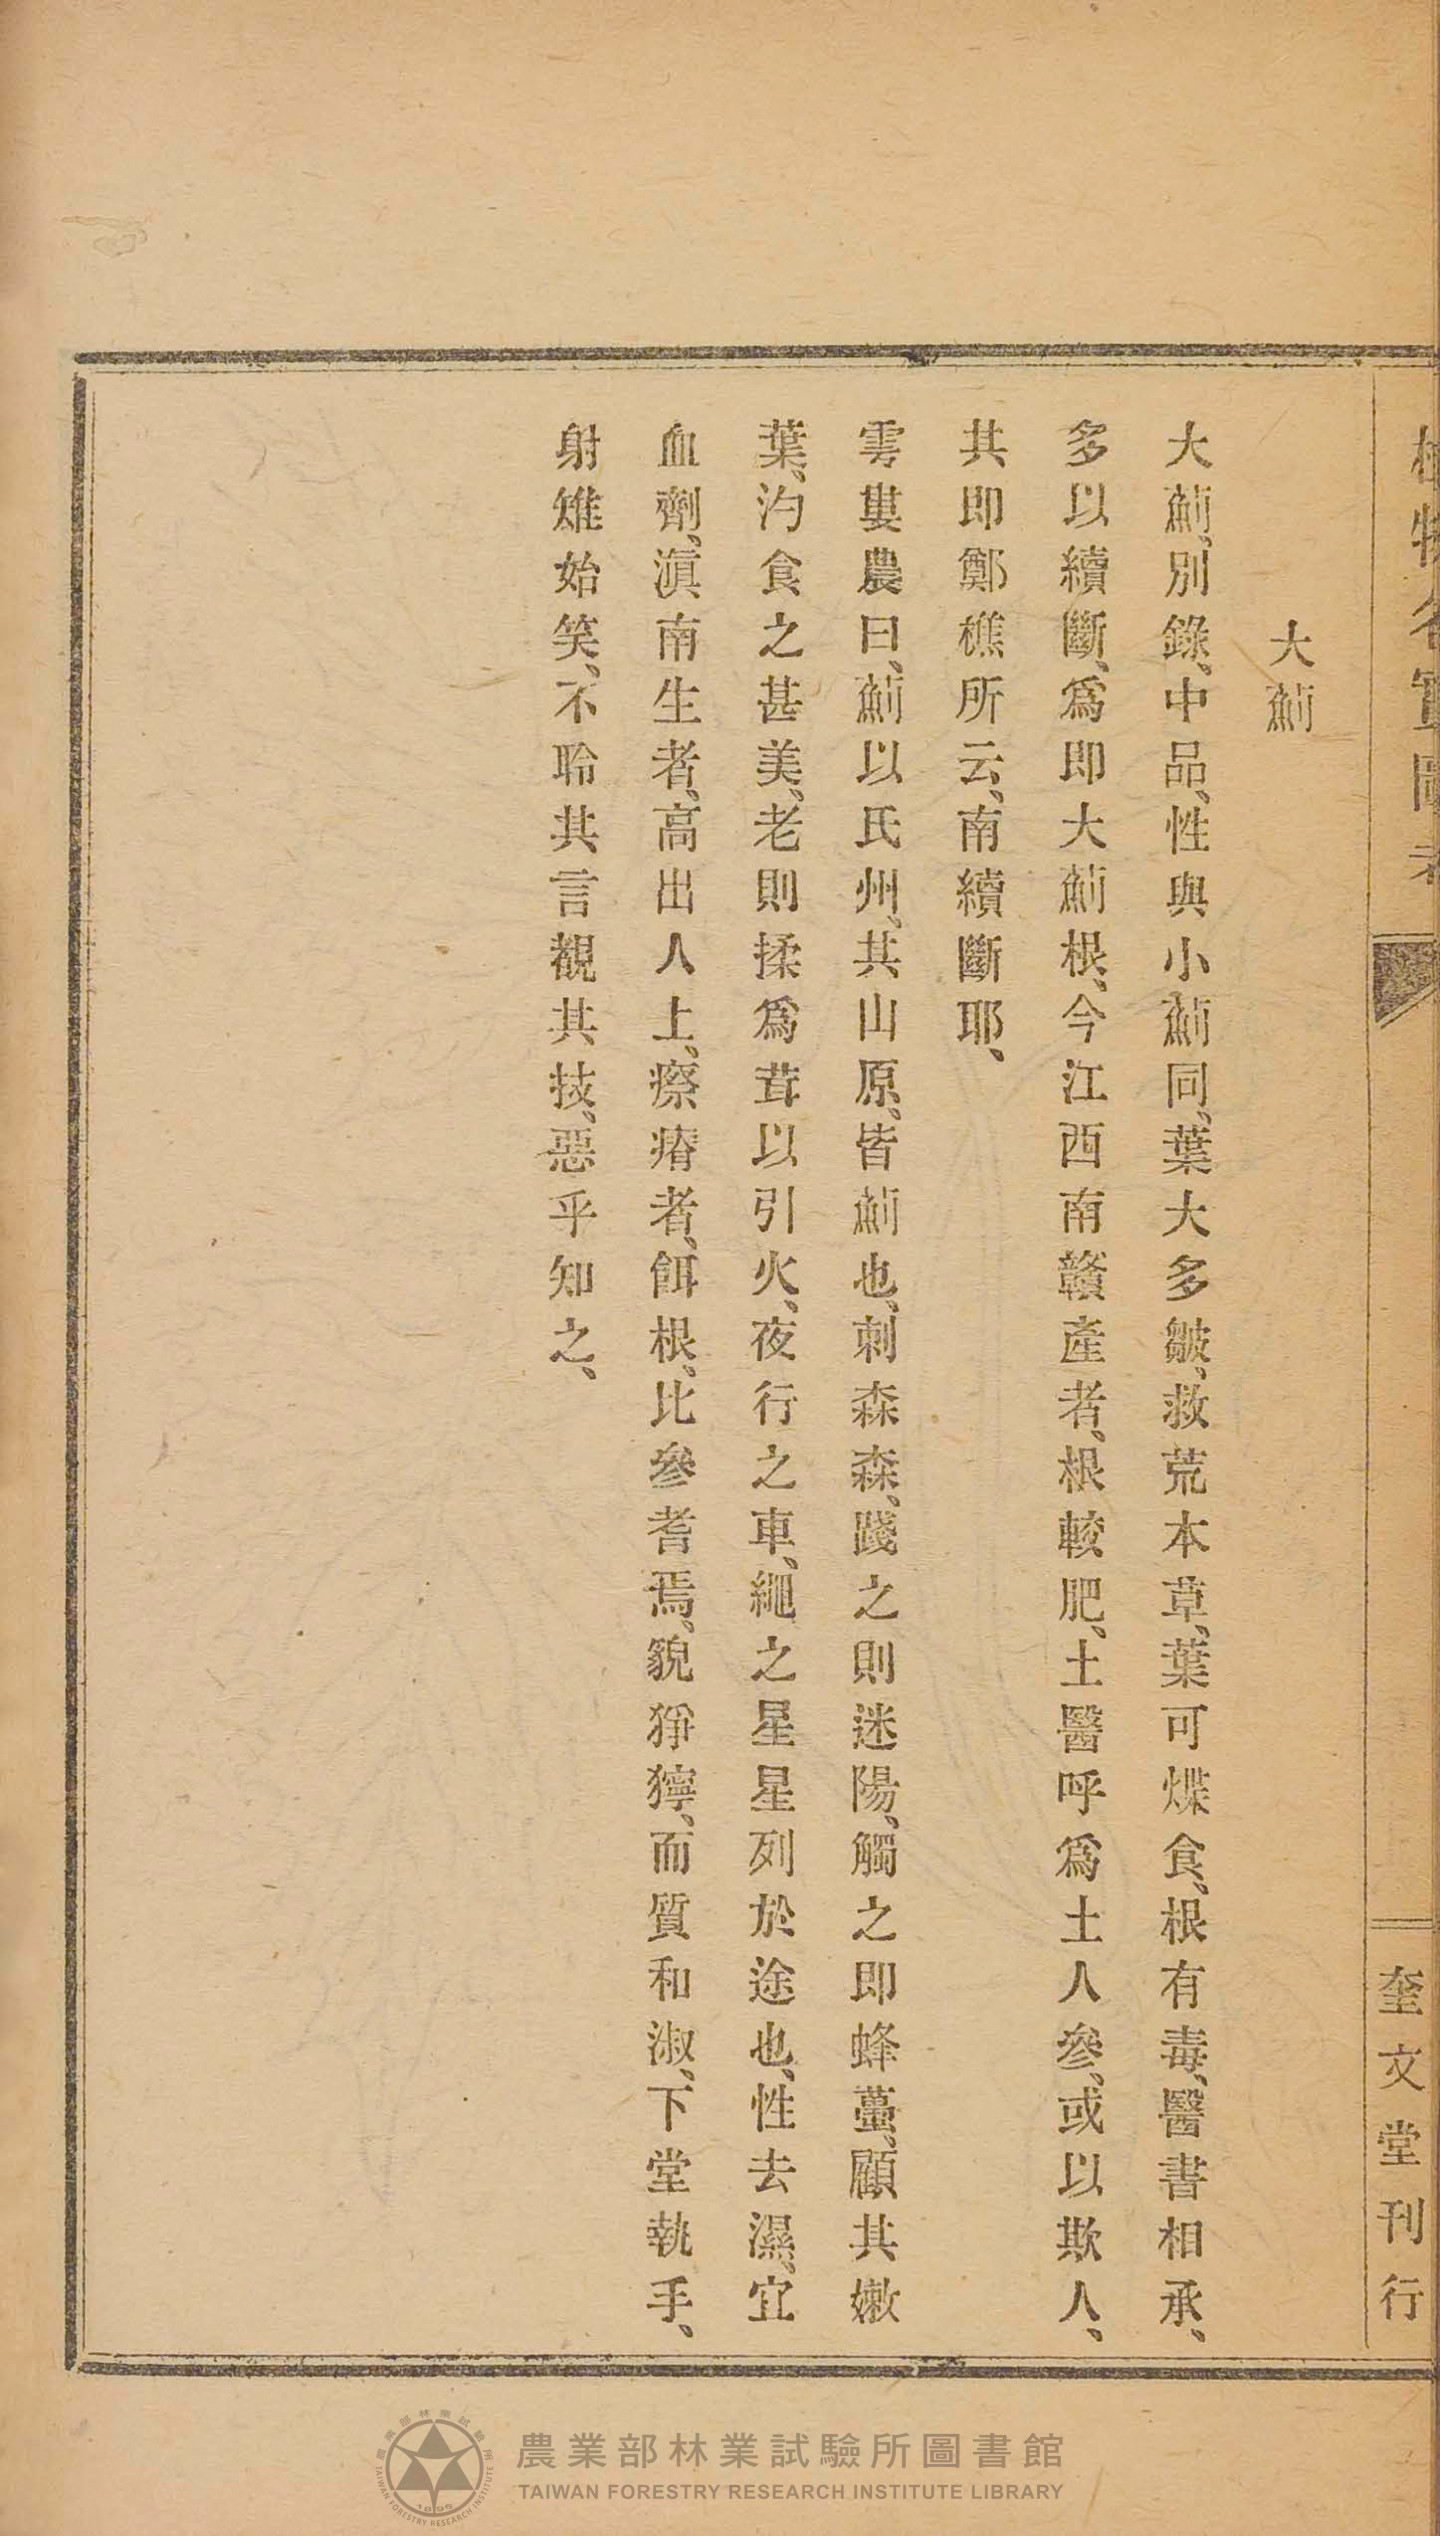 植物名實圖考
奎文堂刊行
大薊
大薊、別錄、中品、性與小薊同、葉大多皺、救荒本草、葉可煠食、根有毒、醫書相承、
多以續斷、爲即大薊根、今江西南贛產者、根較肥、土醫呼爲土人參、或以欺人、
其即鄭樵所云、南續斷耶、
雩婁農曰、薊以氏州、其山原、皆薊也、刺森森、踐之則迷陽、觸之即蜂蠆、顧其嫩
葉、汋食之甚美、老則揉爲茸以引火、夜行之車、繩之星星列於途也、性去濕、宜
血劑、滇南生者、高出人上、瘵瘠者、餌根、比參耆焉、貌猙獰、而質和淑、下堂執手、
射雉始笑、不聆其言覩其技、惡乎知之、
農業部林業試驗所圖書館
TAIWAN FORESTRY RESEARCH INSTITUTE LIBRARY
農業部林業試驗所
TAIWAN FORESTRY RESEARCH INSTITUTE
1895